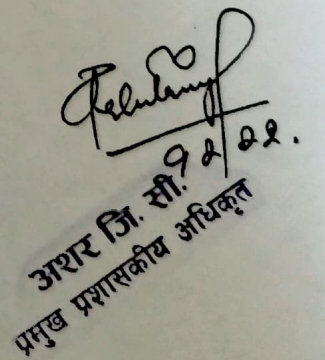 १२/२२.
अशर जि. सी.
प्रमुख प्रशासकीय अधिकृत